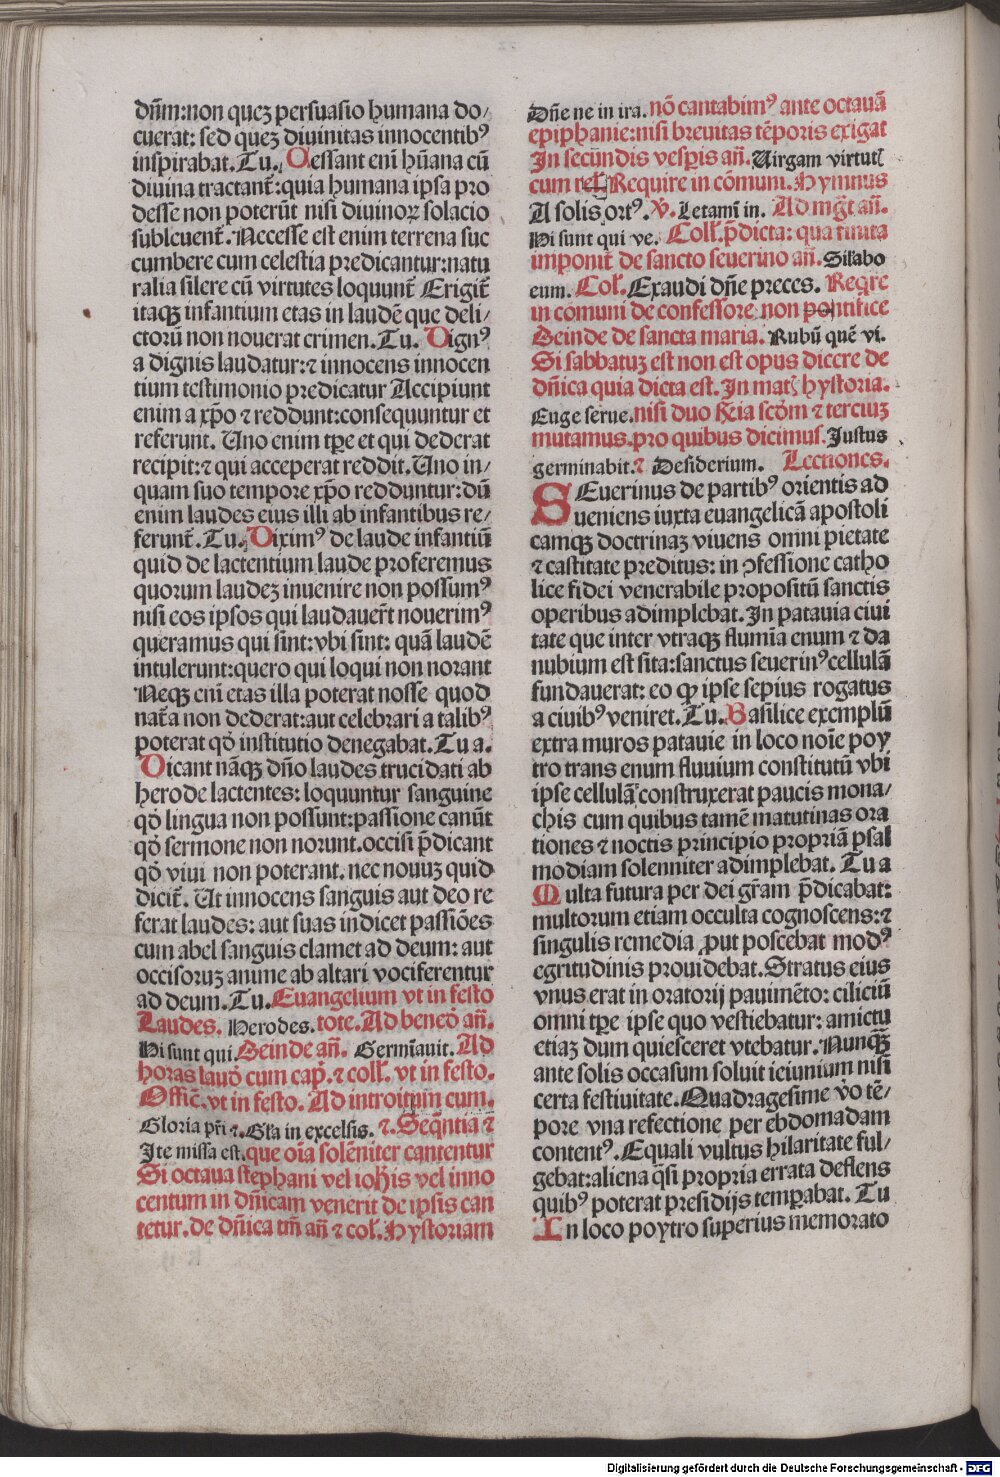 dn̄m:non quez persuasio humana do/
cuerat: sed quez diuinitas innocentibꝰ
inspirabat.Tu. Cessant eni hūana cū
diuina tractant̄:quia humana ipsa pro
desse non poterūt nisi diuinoꝝ solacio
subleuent̄. Necesse est enim terrena suc
cumbere cum celestia predicantur:natu
ralia silere cū virtutes loquunt̄ Erigit̄
itaqꝫ infantium etas in laudē que deli/
ctorū non nouerat crimen.Tu. Dignꝰ
a dignis laudatur:⁊ innocens innocen
tium testimonio predicatur Accipiunt
enim a xp̄o ⁊ reddunt:consequuntur et
referunt. Uno enim tp̄e et qui dederat
recipit:⁊ qui acceperat reddit.Uno in/
quam suo tempore xp̄o redduntur:dū
enim laudes eius illi ab infantibus re/
ferunt̄.Tu. Diximꝰ de laude infantiū
quid de lactentium laude proferemus
quorum laudez inuenire non possumꝰ
nisi eos ipsos qui laudauer̄t nouerimꝰ
queramus qui sint:vbi sint: quā laudē
intulerunt:quero qui loqui non norant
Neqꝫ eni etas illa poterat nosse quod
nat̄a non dederat:aut celebrari a talibꝰ
poterat qd̄ institutio denegabat.Tu a.
Dicant nāqꝫ dn̄o laudes trucidati ab
herode lactentes: loquuntur sanguine
qd̄ lingua non possunt:passione canūt
qd̄ sermone non norunt.occisi p̄dicant
qd̄ viui non poterant. nec nouuz quid
dicit̄. Ut innocens sanguis aut deo re
ferat laudes: aut suas indicet passiōes
cum abel sanguis clamet ad deum: aut
occisoruz anime ab altari vociferentur
ad deum.Tu.Euangelium vt in festo
Laudes. Herodes.tote.Ad bened̄ an̄.
Hi sunt qui.Deinde an̄. Germīauit.Ad
horas laud̄ cum cap̄.⁊ coll̄. vt in festo.
Offic̄.vt in festo. Ad introitum cum.
Gloria pr̄i ⁊.Gl̄a in excelsis. ⁊.Seq̄ntia ⁊
Ite missa est.que oīa solēniter cantentur
Si octaua stephani vel ioh̄is vel inno
centum in dn̄icam venerit de ipsis can
tetur.de dn̄ica tm̄ an̄ ⁊ col̄. Hystoriam
Dn̄e ne in ira.nō cantabimꝰ ante octauā
epiphanie:nisi breuitas tēporis exigat
In secundis vesp̄is an̄.Uirgam virtut̄
cum rel̄.Require in cōmuni.Hymnus
A solis ortꝰ. ꝟ. Letami in. Ad mg̅t an̄.
Hi sunt qui ve. Coll̄.p̄dicta: qua finita
imponit̄ de sancto seuerino an̄.Silabo
eum. Col̄.Exaudi dn̄e preces. Reqre
in cōmuni de confessore non pontifice
Deinde de sancta maria. Rubū quē vi.
Si sabbatuz est non est opus dicere de
dn̄ica quia dicta est.In mat̄ hystoria.
Euge serue.nisi duo R̄ia scd̄m ⁊ terciuz
mutamus.pro quibus dicimus.Justus
germinabit.⁊ Desiderium. Lectiones.
SEuerinus de partibꝰ orientis ad
ueniens iuxta euangelicā apostoli
camqꝫ doctrinaz viuens omni pietate
⁊ castitate preditus: in ꝯfessione catho
lice fidei venerabile propositū sanctis
operibus adimplebat.In patauia ciui
tate que inter vtraqꝫ flumīa enum ⁊ da
nubium est sita:sanctus seuerinꝰ cellulā
fundauerat: eo qꝙ ipse sepius rogatus
a ciuibꝰ veniret.Tu.Basilice exemplū
extra muros patauie in loco noīe poy
tro trans enum fluuium constitutū vbi
ipse cellulā construxerat paucis mona/
chis cum quibus tamē matutinas ora
tiones ⁊ noctis principio propriā psal
modiam solenniter adimplebat. Tu a
Multa futura per dei gr̄am p̄dicabat:
multorum etiam occulta cognoscens:⁊
singulis remedia ꝓut poscebat modꝰ
egritudinis prouidebat.Stratus eius
vnus erat in oratorij pauimēto: ciliciū
omni tp̄e ipse quo vestiebatur: amictu
etiaz dum quiesceret vtebatur.Nunqꝫ
ante solis occasum soluit ieiunium nisi
certa festiuitate.Quadragesime v̄o tē/
pore vna refectione per ebdomadam
contentꝰ.Equali vultus hilaritate ful/
gebat:aliena q̄si propria errata deflens
quibꝰ poterat presidijs temꝑabat. Tu
In loco poytro superius memorato
Digitalisierung gefördert durch die Deutsche Forschungsgemeinschaft - DFG